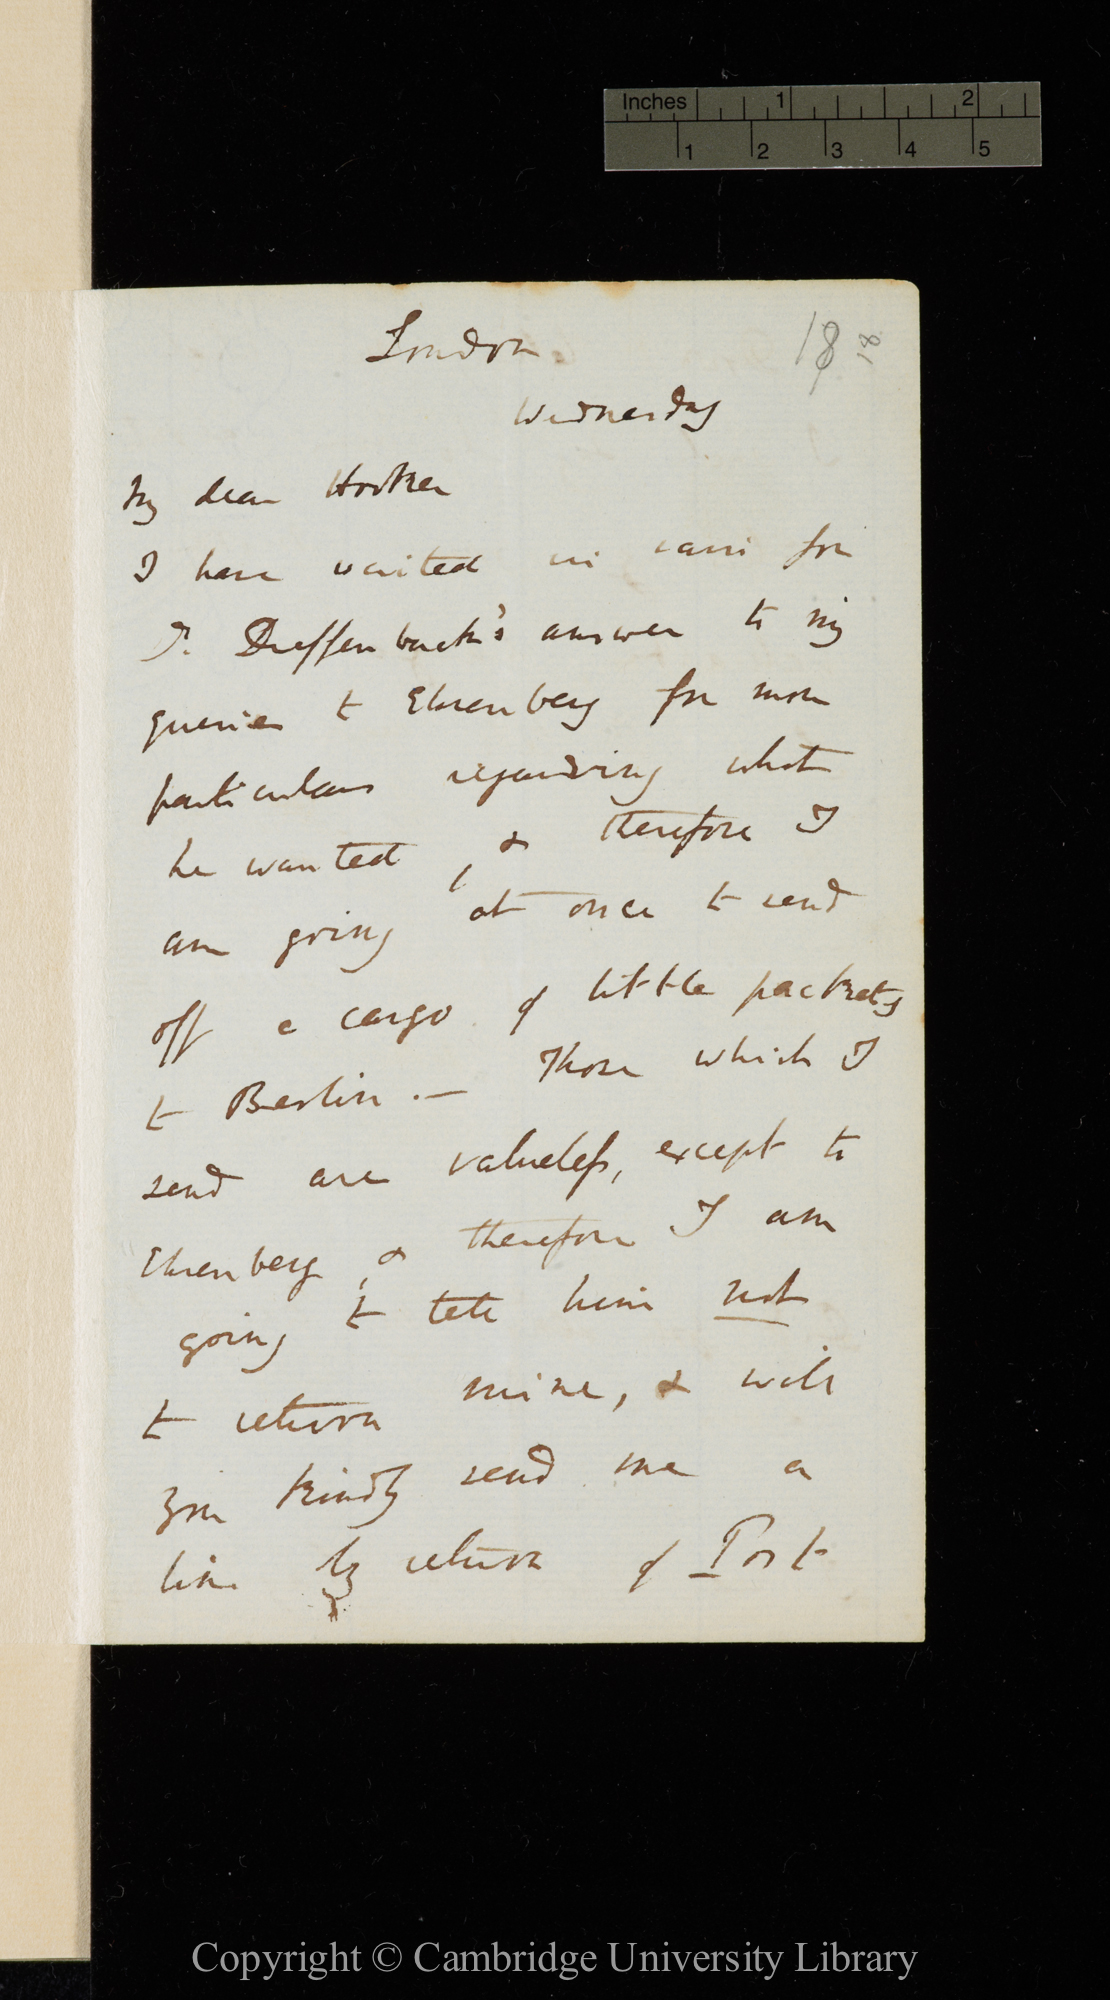 Inches 1 2
1 2 3 4 5
London
18 18
Wednesday
My dear Hooker
I have waited in vain for
Dr. Dieffenbach's answer to my
queries to Ehrenberg for more
particulars regarding what
he wanted, & therefore I
am going at once to send
off a cargo of little packets
to Berlin.— Those which I
send are valueless, except to
Ehrenberg, & therefore I am
going to tell him not
to return mine, & will
you kindly send me a
line by return of Post
Copyright © Cambridge University Library